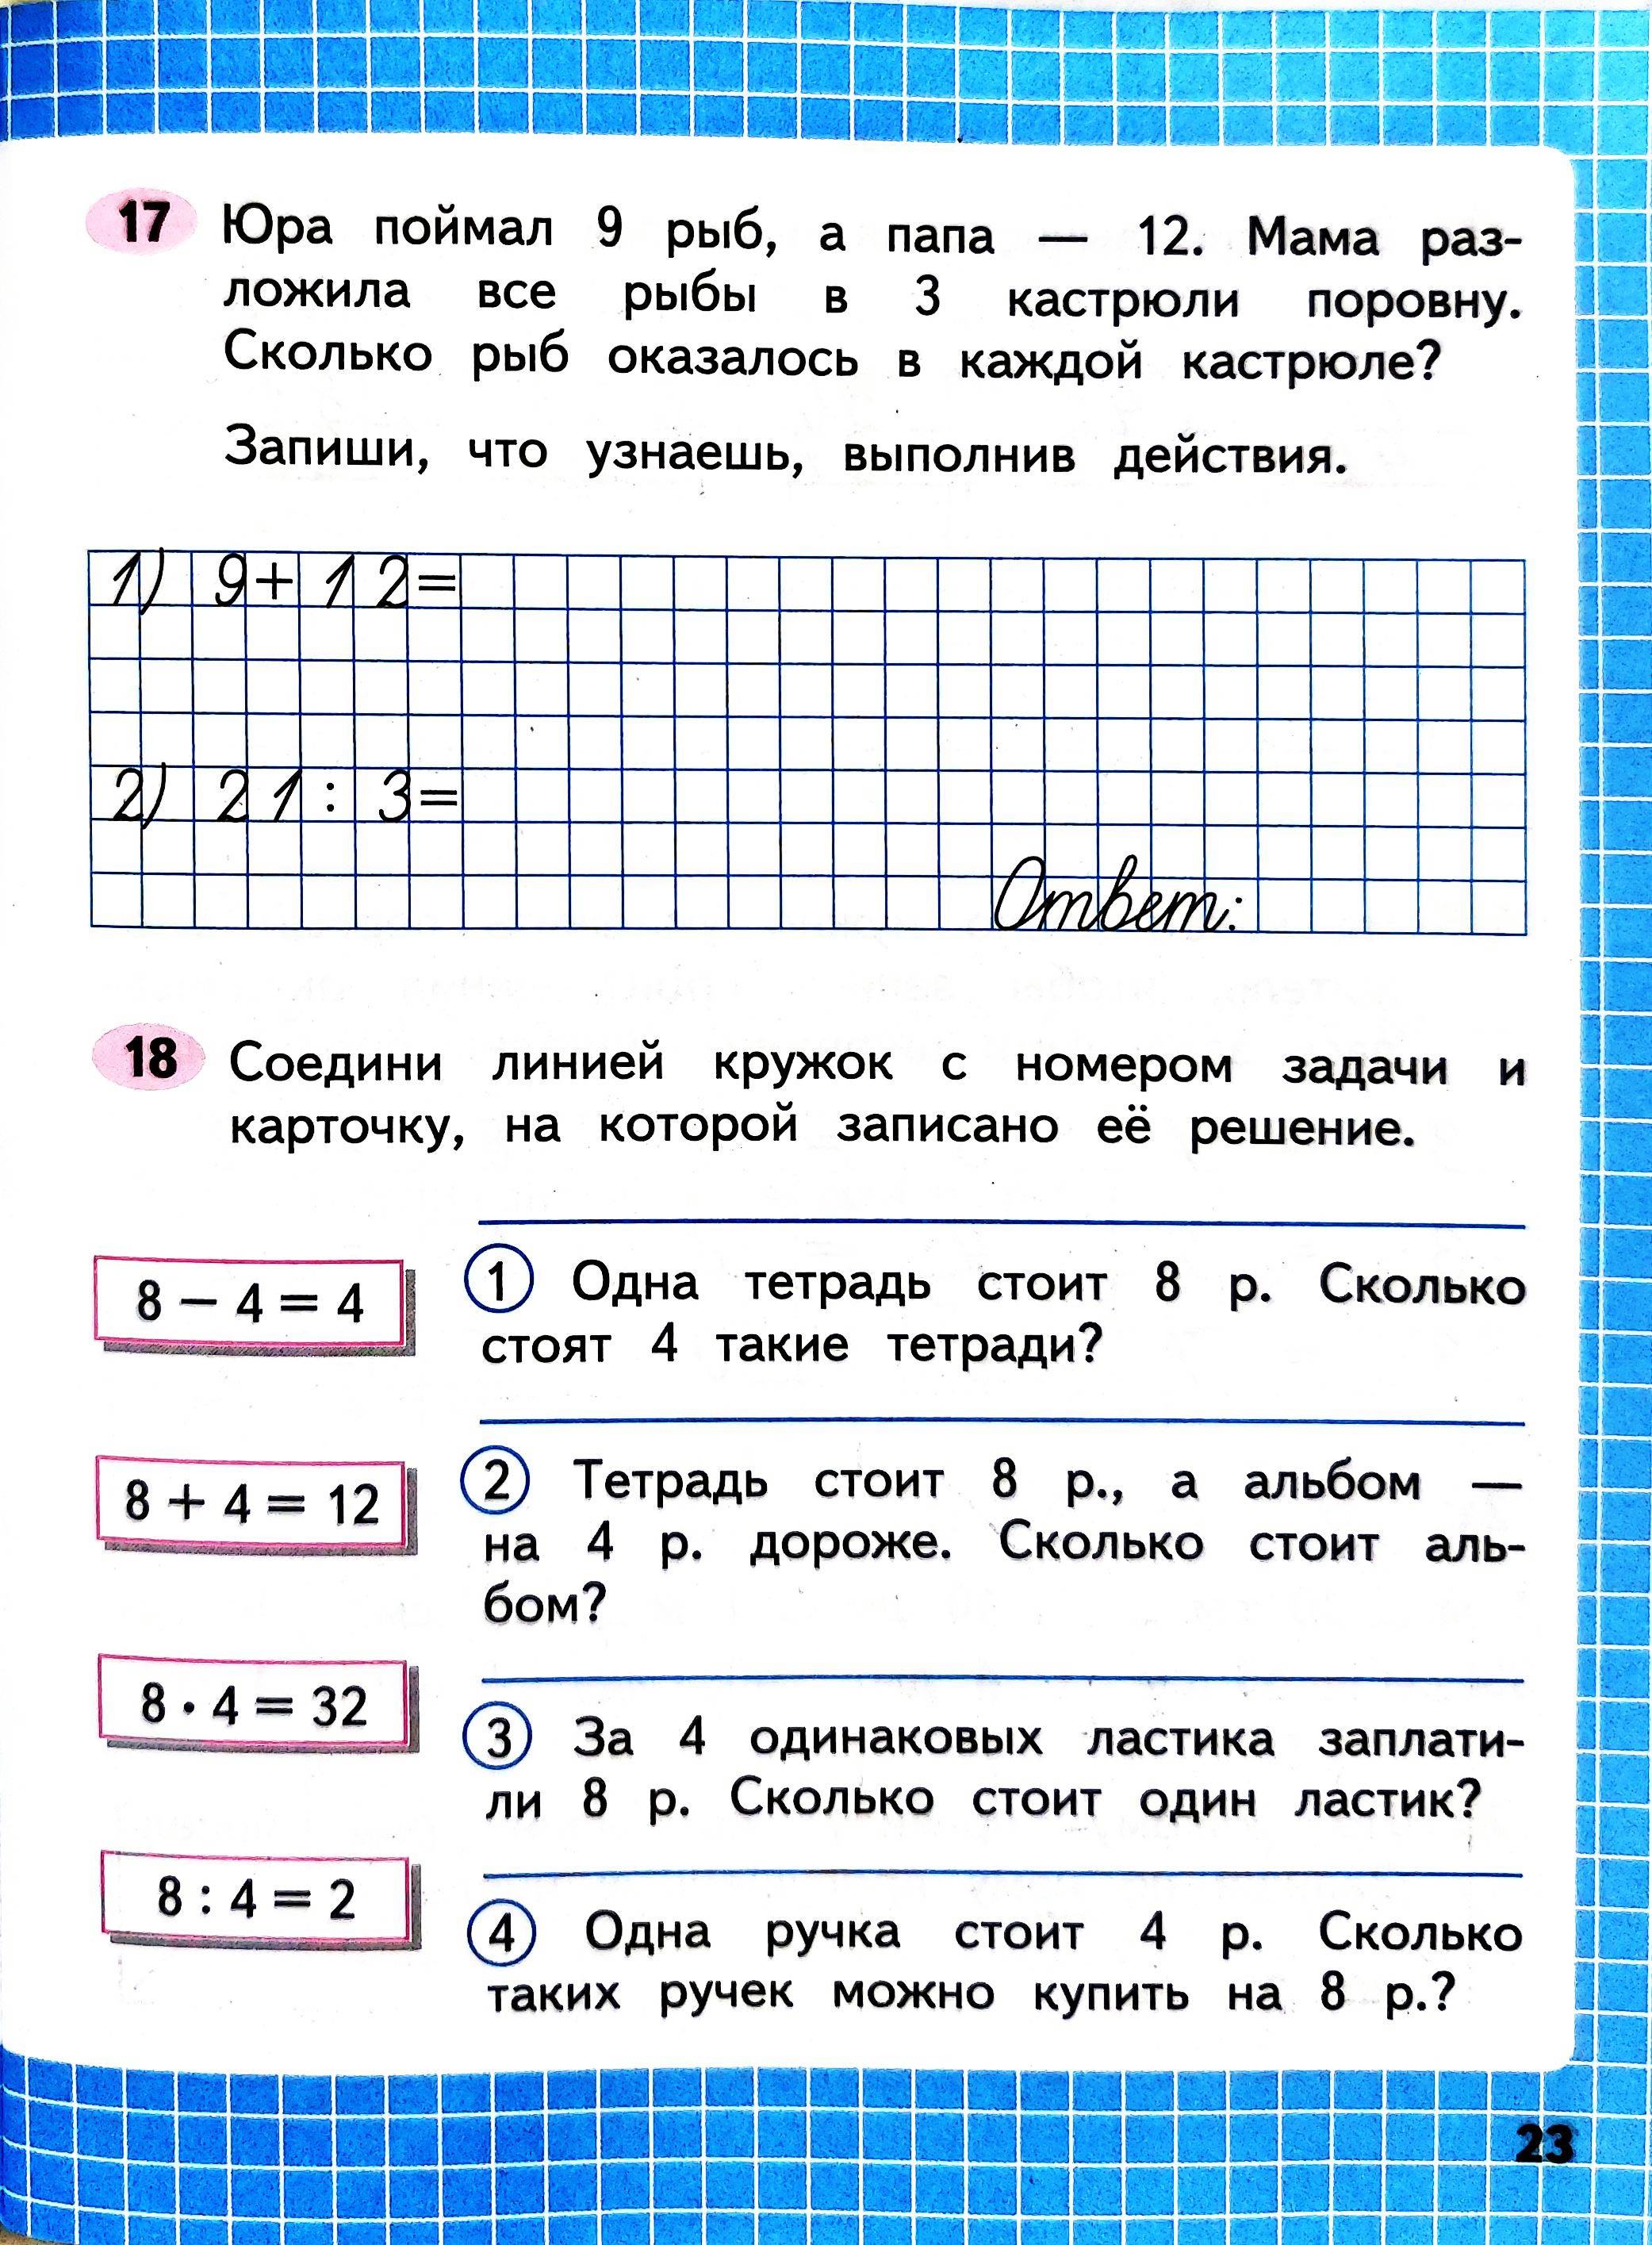 17 Юра поймал 9 рыб, а папа — 12. Мама раз-
ложила все рыбы в 3 кастрюли поровну.
Сколько рыб оказалось в каждой кастрюле?
Запиши, что узнаешь, выполнив действия.
1) 9+12=
2) 21:3=
Ответ:
18 Соедини линией кружок с номером задачи и
карточку, на которой записано её решение.
8 − 4 = 4
8 + 4 = 12
8 · 4 = 32
8 : 4 = 2
1 Одна тетрадь стоит 8 р. Сколько
стоят 4 такие тетради?
2 Тетрадь стоит 8 р., а альбом —
на 4 р. дороже. Сколько стоит аль-
бом?
3 За 4 одинаковых ластика заплати-
ли 8 р. Сколько стоит один ластик?
4 Одна ручка стоит 4 р. Сколько
таких ручек можно купить на 8 р.?
23